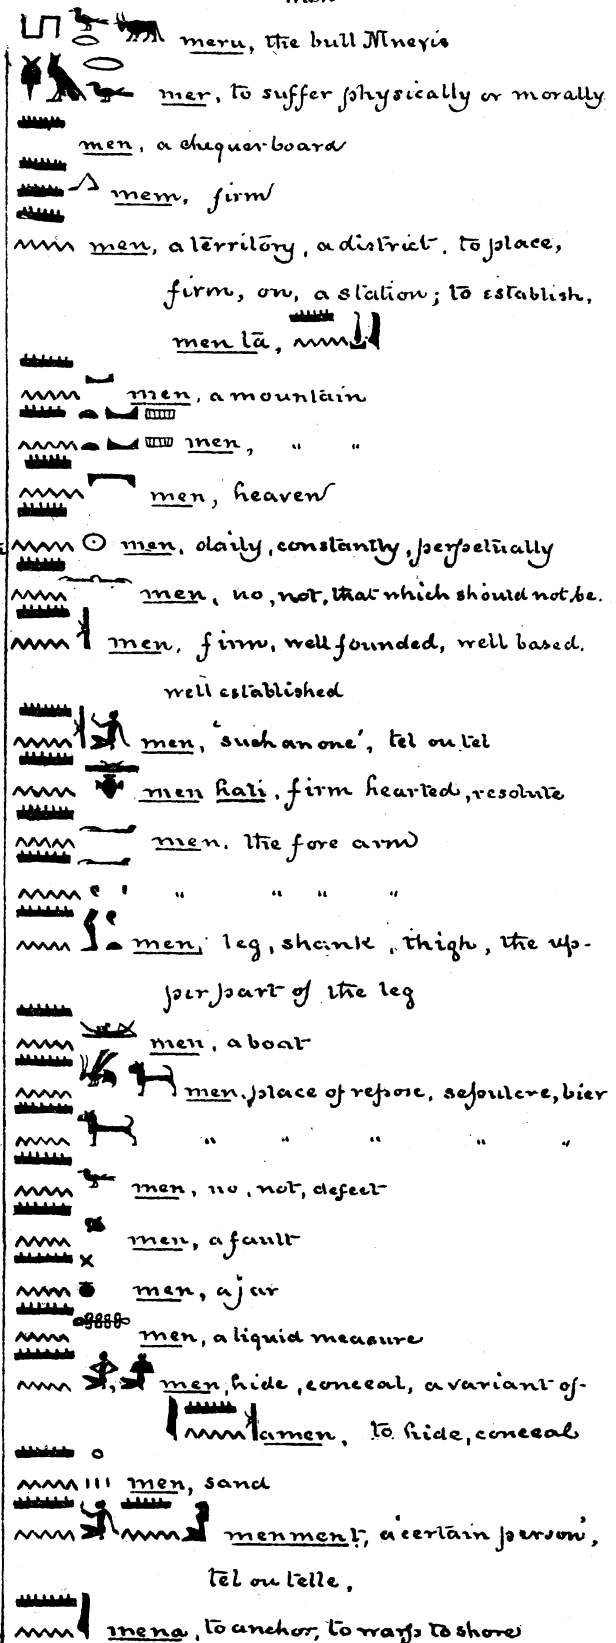 meru, the bull Mnevis
mer, to suffer physically or morally
men, a chequer board
mem, firm
men, a territory, a district, to place,
firm, on, a station; to establish,
men tā,
men, a mountain
men, " "
men, heaven
men, daily, constantly, perpetually
men, no, not, that which should not be.
men, firm, well founded, well based.
well established
men, 'such an one', tel ou tel
men hati, firm hearted, resolute
men, the fore arm
" " " "
men, leg, shank, thigh, the up-
per part of the leg
men, a boat
men, place of repose, sepulcre, bier
" " " " "
men, no, not, defect
men, a fault
men, a jar
men, a liquid measure
men, hide, conceal, a variant of-
amen, to hide, conceal
men, sand
menment, a 'certain person',
tel ou telle,
mena, to anchor, to warp to shore